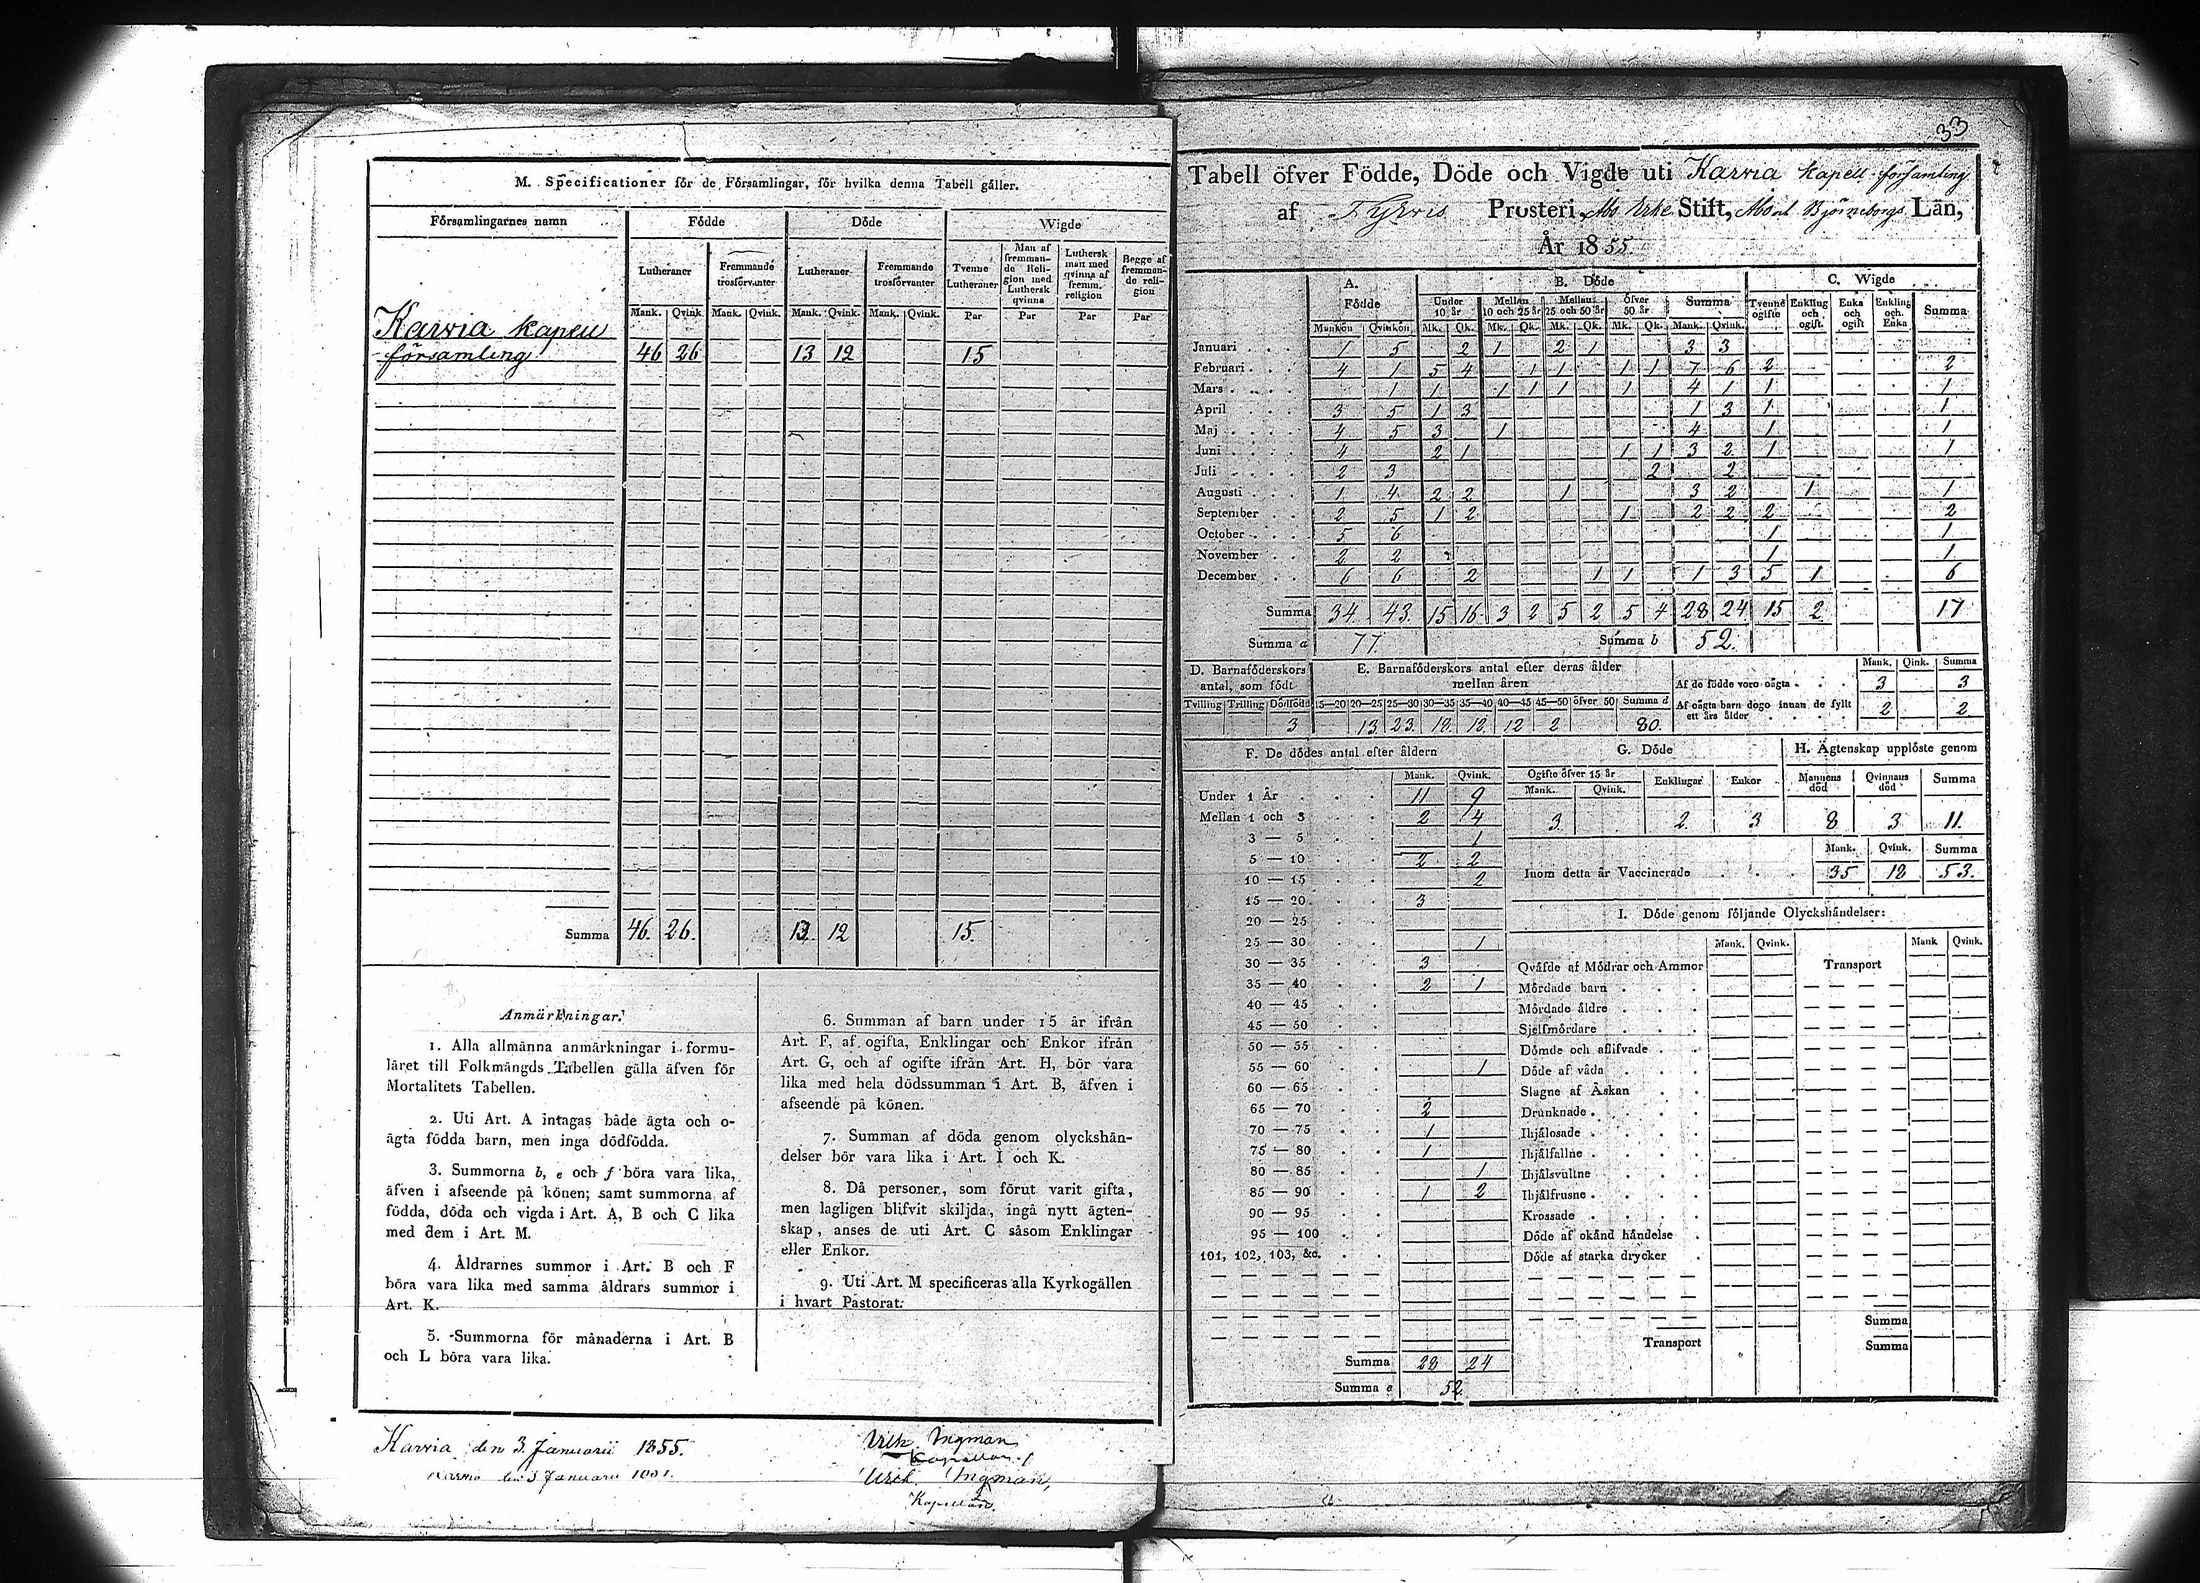 M. Specificationer för de Församlingar, för hvilka denna Tabell gäller.
Församlingarnes namn Födde Döde Wigde
Lutheraner Fremmande trosförvanter Lutheraner Fremmande trosförvanter Tvenne Lutheraner Man af fremmande Religion med Luthersk qvinna Luthersk man med qvinna af fremm. religion Begge af fremmande religion
Mank. Qvink. Mank. Qvink. Mank. Qvink. Mank. Qvink. Par Par Par Par
Karvia kapell
församling 46 26 13 12 15
Summa 46. 26. 12 15.
Anmärkningar.
1. Alla allmänna anmärkningar i formu-
läret till Folkmängds Tabellen gälla äfven för
Mortalitets Tabellen.
2. Uti Art. A intagas både ägta och o-
ägta födda barn, men inga dödfödda.
3. Summorna b, e och f böra vara lika,
äfven i afseende på könen; samt summorna af
födda, döda och vigda i Art. A, B och C lika
med dem i Art. M.
4. Åldrarnes summor i Art. B och F
böra vara lika med samma åldrars summor i
Art. K.
5. Summorna för månaderna i Art. B
och L böra vara lika.
6. Summan af barn under 15 år ifrån
Art. F, af ogifta, Enklingar och Enkor ifrån
Art. G, och af ogifte ifrån Art. H, bör vara
lika med hela dödssumman i Art. B, äfven i
afseende på könen.
7. Summan af döda genom olyckshän-
delser bör vara lika i Art. I och K.
8. Då personer, som förut varit gifta,
men lagligen blifvit skiljda, ingå nytt ägten-
skap, anses de uti Art. C såsom Enklingar
eller Enkor.
9. Uti Art. M specificeras alla Kyrkogällen
i hvart Pastorat.
Karvia den 3. Januarii 1855.
Ingman
Kapellan.
Januarii
Ingman,
Kapellan.
33
Tabell öfver Födde, Döde och Vigde uti Karvia kapell församling
af Tyrvis Prosteri, Åbo Erke Stift, Åbo och Björneborgs Län,
År 1855.
A. Födde B. Döde C. Wigde
Under 10 år Mellan 10 och 25 år Mellan 25 och 50 år öfver 50 år Summa Tvenne ogifte Enkling och ogift. Enka och ogift Enkling och Enka Summa
Mankön Qvinkön Mk. Qk. Mk. Qk. Mk. Qk. Mk. Qk. Mank. Qvink.
Januari 1 5 2 1 2 1 3 3
Februari 4 1 5 4 1 1 1 1 7 6 2 2
Mars 1 1 1 1 1 1 4 1 1 1
April 3 5 1 3 1 3 1 1
Maj 4 5 3 1 4 1 1
Juni 4 2 1 1 1 3 2 1 1
Juli 2 3 2 2
Augusti 1 4 2 2 1 3 2 1 1
September 2 5 1 2 1 2 2 2 2
October 5 6 1 1
November 2 2 1 1
December 6 6 2 1 1 1 3 5 1 6
Summa 34. 43. 15 16 3 2 5 2 5 4 28 24 15 2 17
Summa a 77. Summa b 52.
D. Barnaföderskors antal, som födt
Tvilling Trilling Dödfödd
3
E. Barnaföderskors antal efter deras ålder
mellan åren
15—20 20—25 25—30 30—35 35—40 40—45 45—50 öfver 50 Summa d
13 23 18 12 12 2 80.
Mank. Qink. Summa
Af de födde voro oägta 3 3
Af oägta barn dogo innan de fyllt ett års ålder 2 2
F. De dödes antal efter åldern
Mank. Qvink.
Under 1 År 11 9
Mellan 1 och 3 2 4
3 — 5 1
5 — 10 2 2
10 — 15 2
15 — 20 3
20 — 25
25 — 30 1
30 — 35 3
35 — 40 2 1
40 — 45
45 — 50
50 — 55
55 — 60 1
60 — 65
65 — 70 2
70 — 75 1
75 — 80 1
80 — 85 1
85 — 90 1 2
90 — 95
95 — 100
101, 102, 103, &c.
Summa 28 24
Summa e 52
G. Döde
Ogifte öfver 15 år Enklingar Enkor
Mank. Qvink.
3. 2. 3
H. Ägtenskap upplöste genom
Mannens död Qvinnans död Summa
8 3 11.
Mank. Qvink. Summa
Inom detta år Vaccinerade 35 18 53.
I. Döde genom följande Olyckshändelser:
Mank. Qvink. Mank Qvink.
Qväfde af Mödrar och Ammor Transport
Mördade barn
Mördade äldre
Sjelfmördare
Dömde och aflifvade
Döde af våda
Slagne af Åskan
Drunknade
Ihjälosade
Ihjälfallne
Ihjälsvultne
Ihjälfrusne
Krossade
Döde af okänd händelse
Döde af starka drycker
Summa
Transport Summa